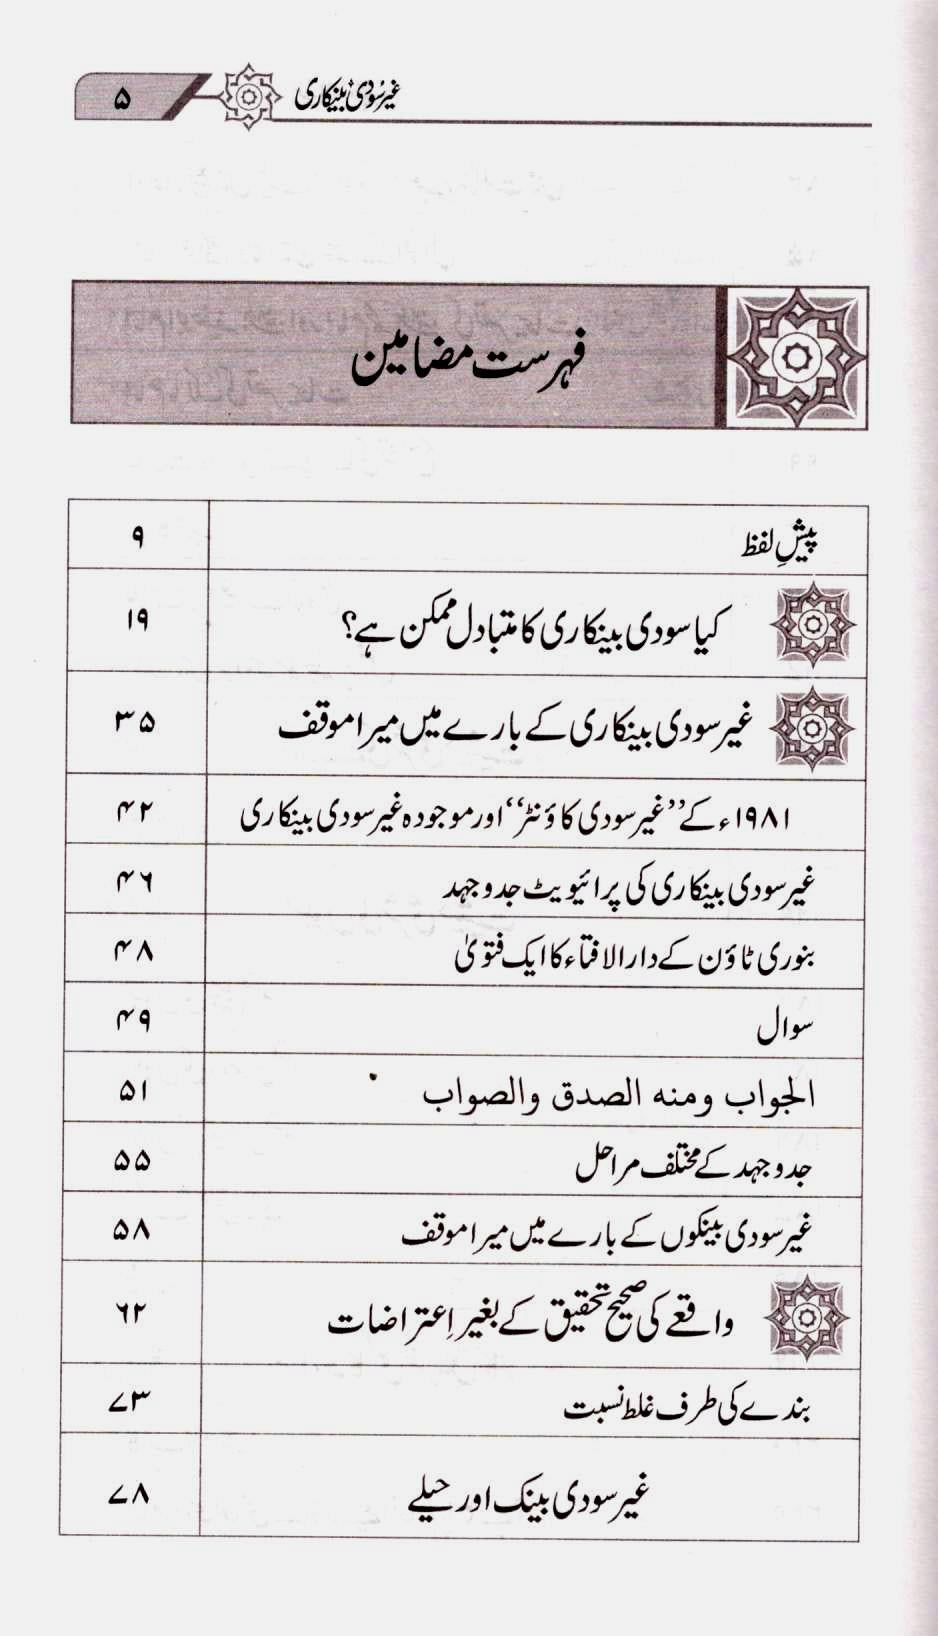 غیر سُودی بینکاری ۵
فہرست مضامین
پیشِ لفظ ۹
کیا سودی بینکاری کا متبادل ممکن ہے؟ ۱۹
غیر سودی بینکاری کے بارے میں میرا موقف ۳۵
۱۹۸۱ء کے ”غیر سودی کاؤنٹر“ اور موجودہ غیر سودی بینکاری ۴۲
غیر سودی بینکاری کی پرائیویٹ جدوجہد ۴۶
بنوری ٹاؤن کے دارالافتاء کا ایک فتویٰ ۴۸
سوال ۴۹
الجواب ومنه الصدق والصواب ۵۱
جدوجہد کے مختلف مراحل ۵۵
غیر سودی بینکوں کے بارے میں میرا موقف ۵۸
واقعے کی صحیح تحقیق کے بغیر اِعتراضات ۶۲
بندے کی طرف غلط نسبت ۷۳
غیر سودی بینک اور حیلے ۷۸